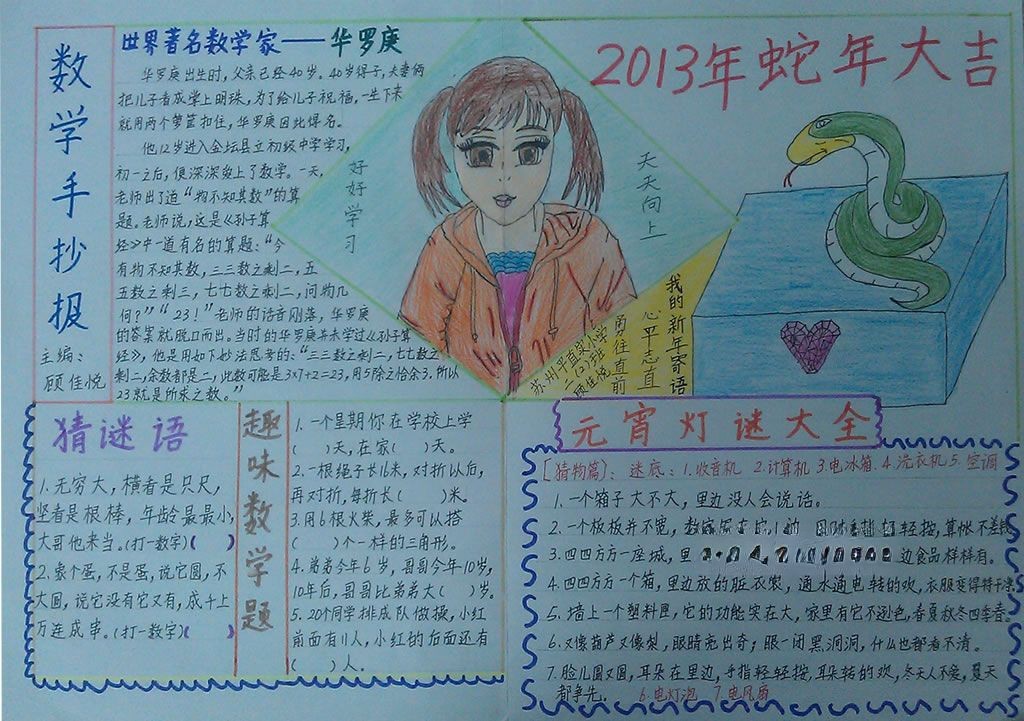 数学手抄报
主编：
顾佳悦
世界著名数学家——华罗庚
华罗庚出生时，父亲已经40岁。40岁得子，夫妻俩
把儿子看成掌上明珠，为了给儿子祝福，一生下来
就用两个箩筐扣住，华罗庚因此得名。
他12岁进入金坛县立初级中学学习，
初一之后，便深深爱上了数学。一天，
老师出了道“物不知其数”的算
题。老师说，这是《孙子算
经》中一道有名的算题：“今
有物不知其数，三三数之剩二，五
五数之剩三，七七数之剩二，问物几
何？”“23！”老师的话音刚落，华罗庚
的答案就脱口而出。当时的华罗庚并未学过《孙子算
经》，他是用如下妙法思考的：“三三数之剩二，七七数之
剩二，余数都是二，此数可能是3×7+2=23，用5除之恰余3，所以
23就是所求之数。”
好好学习
天天向上
2013年蛇年大吉
我的新年寄语
心平志直
勇往直前
苏州平直实小学
二（2）班
顾佳悦
猜谜语
1.无穷大，横看是只尺，
竖看是根棒，年龄最最小，
大哥他来当。(打一数字)( )
2.象个蛋，不是蛋，说它圆，不
大圆，说它没有它又有，成千上
万连成串。(打一数字)( )
趣味数学题
1.一个星期你在学校上学
( )天，在家( )天。
2.一根绳子长16米，对折以后，
再对折，每折长( )米。
3.用6根火柴，最多可以搭
( )个一样的三角形。
4.弟弟今年6岁，哥哥今年10岁，
10年后，哥哥比弟弟大( )岁。
5.20个同学排成队做操，小红
前面有11人，小红的后面还有
( )人。
元宵灯谜大全
[猜物篇]：谜底：1.收音机 2.计算机 3.电冰箱.4.洗衣机 5.空调
1.一个箱子大不大，里边没人会说话。
2.一个板板并不宽，数 轻按，算帐不差钱
3.四四方方一座城，里 边食品样样有。
4.四四方方一个箱，里边放的脏衣裳，通水通电转的欢，衣服变得特干净.
5.墙上一个塑料匣，它的功能实在大，家里有它不逊色，春夏秋冬四季春。
6.又像葫芦又像梨，眼睛亮出奇；眼一闭黑洞洞，什么也都看不清。
7.脸儿圆又圆，耳朵在里边，手指轻轻按，耳朵转的欢，冬天人不爱，夏天
都争先。 6.电灯泡 7.电风扇